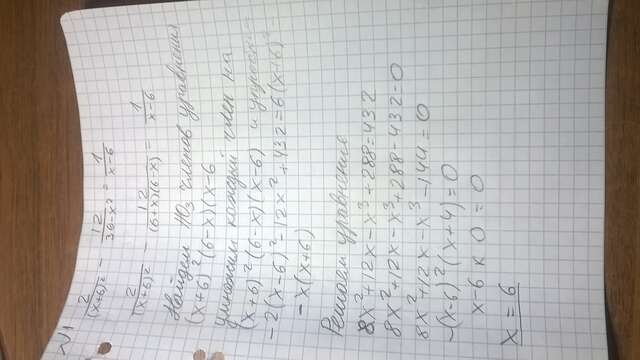 √1 2/(x+6)² - 12/36-x² = 1/x-6
2/(x+6)² - 12/(6+x)(6-x) = 1/x-6
Найдем Юз членов уравнения
(x+6)²(6-x)(x-6
умножим каждый член на
(x+6)²(6-x)(x-6) и
-2(x-6)²-12x²+432=6(x+6)²-
-x(x+6)
Решаем уравнение
8x²+12x-x³+288=432
8x²+12x-x³+288-432=0
8x²+12x-x³-144=0
-(x-6)²(x+4)=0
x-6 к 0=0
x=6